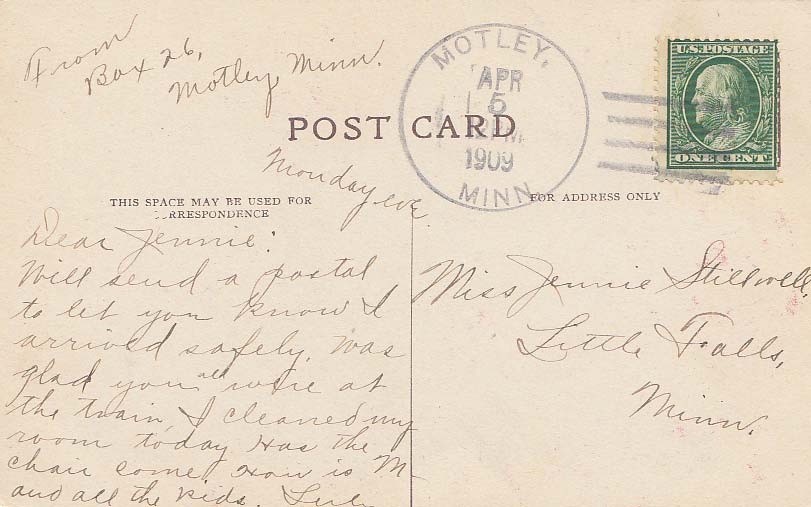 From
Box 26,
Motley, Minn.
MOTLEY,
APR
5
PM
1909
MINN
U.S. POSTAGE
ONE CENT
POST CARD
Monday eve
THIS SPACE MAY BE USED FOR
RRESPONDENCE
FOR ADDRESS ONLY
Dear Jennie:
Will send a postal
to let you know I
arrived safely. Was
glad you all were at
the train, I cleaned my
room today Has the
chair come. How is M-
and all the kids.
Miss Jennie Stillwell,
Little Falls,
Minn.